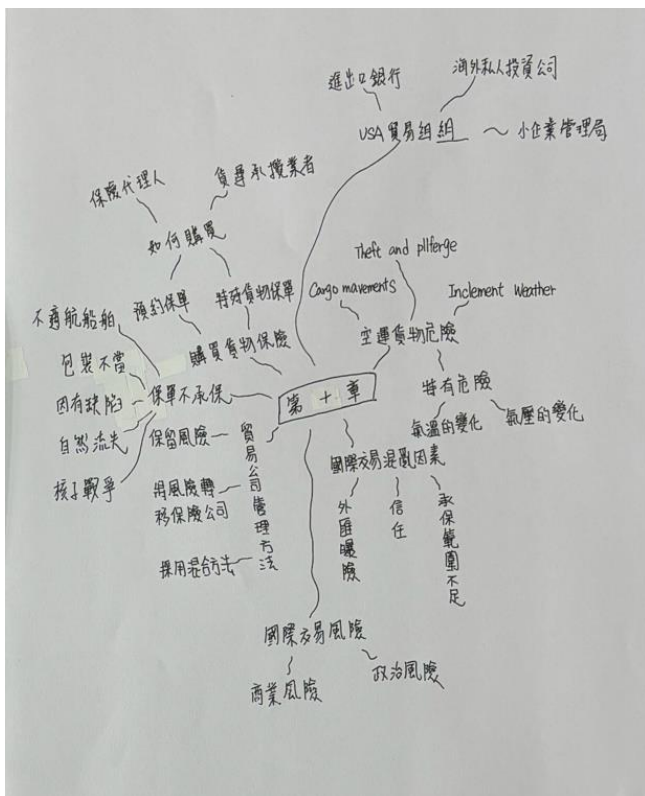 進出口銀行
海外私人投資公司
USA 貿易組組
小企業管理局
保險代理人
貨專承攬業者
如何購買
預約保單
特殊貨物保單
購買貨物保險
Theft and pllferge
Cargo mavements
Inclement Weather
空運貨物危險
特有危險
氣溫的變化
氣壓的變化
不適航船舶
包裝不當
固有缺陷
自然流失
核子戰爭
保單不承保
第十章
保留風險
將風險轉
移保險公司
採用混合方法
貿易公司管理方法
國際交易混亂因素
外匯曝險
信任
承保範圍不足
國際交易風險
商業風險
政治風險